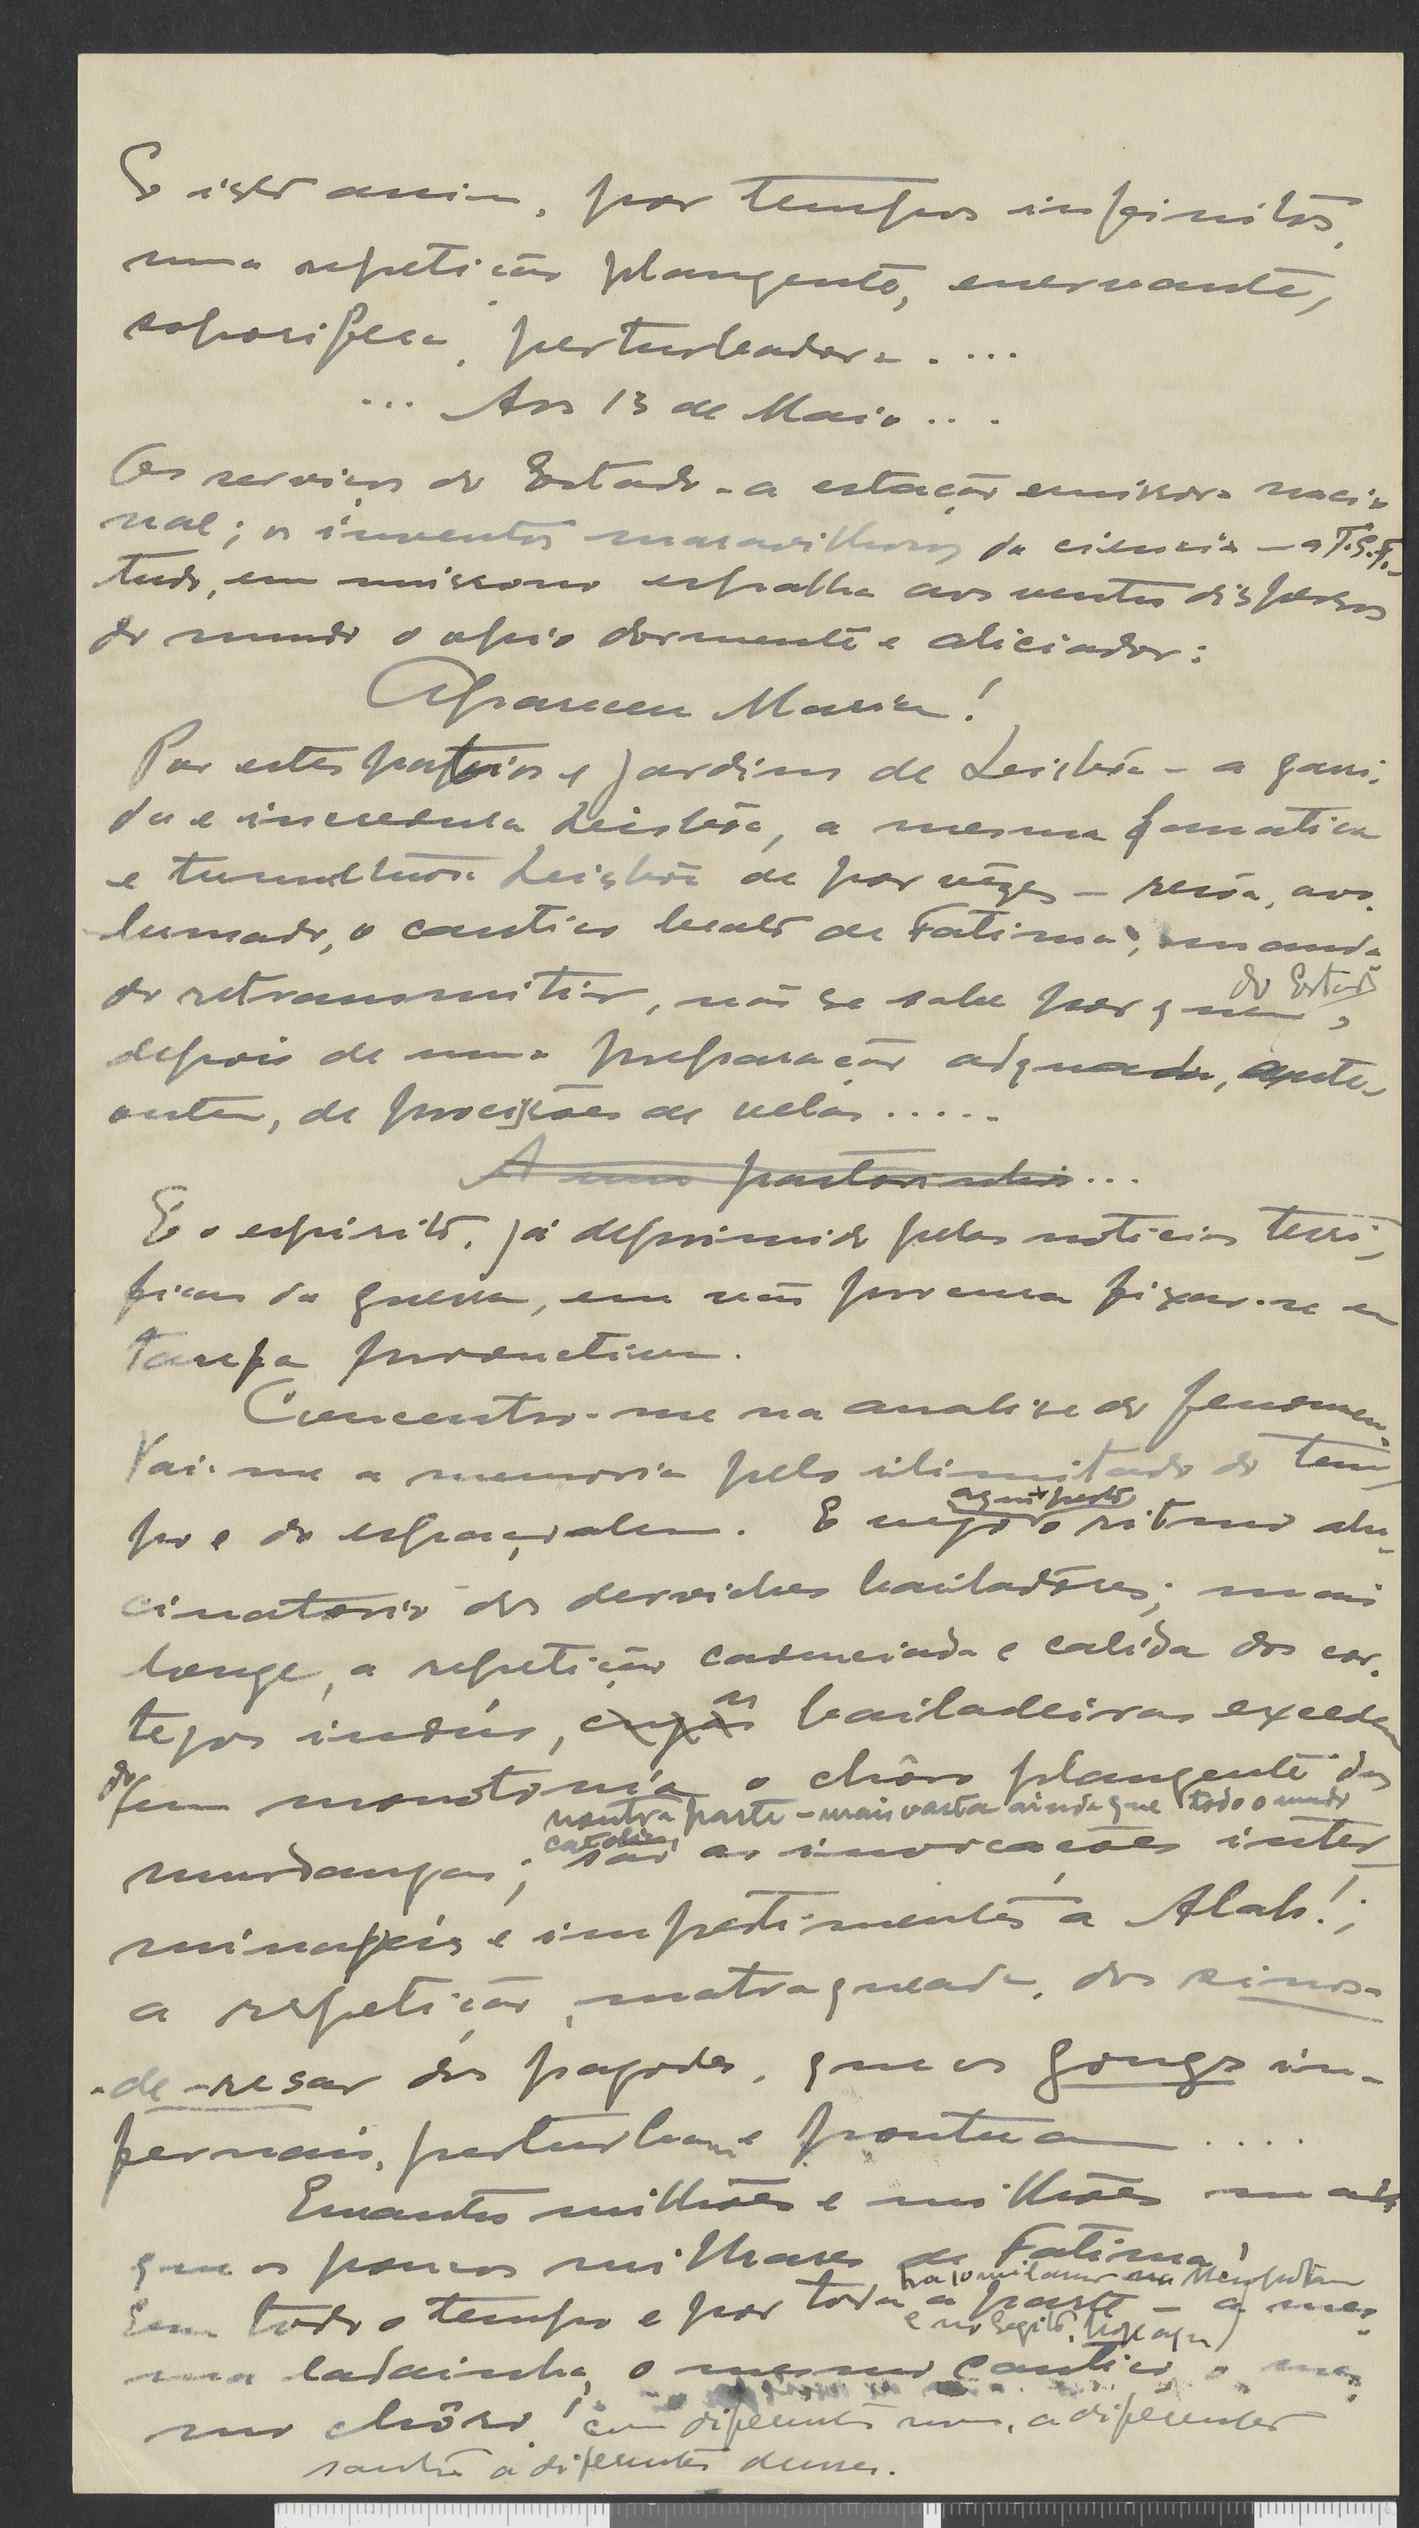 E isto assim, por tempos infinitos,
numa repetição plangente, enervante,
soporifera, perturbadora....
... Aos 13 de Maio ...
Os serviços do Estado - a estação emissora nacio
nal; os inventos maravilhosos da ciencia - a T.S.F. -
tudo, em unissono espalha aos ventos dispersos
do mundo o opio dormente e aliciador:
Apareceu Maria!
Por estes pateos e jardins de Leisbôa - a gani-
da e incredula Leisbôa, a mesma fanatica
e tumultuosa Leisbôa de por vêzes - resôa, avo-
lumado, o cantico beato de Fatima, manda-
do Estado
do retransmitir, não se sabe por quem,
depois de uma preparação adquada, apate-
ontem, de procissões de velas.....
A uns pastorinhos...
E o espirito, já deprimido pelas noticias terri-
ficas da guerra, em vão procura fixar-se em
tarefa productiva.
Concentro-me na analise do fenomeno.
Vai-me a memoria pelo ilimitado do tem-
aqui perto
po e do espaço, alem. E vejo o ritmo alu-
cinatorio dos derviches bailadores; mais
longe, a repetição cadenciada e calida dos cor-
as
tejos indús, cujas bailadeiras exceden
do
em monotonia o chôro plangente das
noutra parte - mais vasta ainda que todo o mundo
catolico,
murdangas; são as invocações inter
minaveis e impertinentes a Alah!;
a repetição, matraqueada, dos sinos-
-de-resar dos pagodes, que os gongs in-
fernais, perturbam e pontuam ....
Quantos milhões e milhões mais
que os poucos milhares de Fatima!
ha 10 mil anos na Mesopotamia
Em todo o tempo e por toda a parte - a mes-
e no Egito, hoje aqui)
ma ladainha, o mesmo cantico, o mes-
mo chôro! com diferentes nomes, a diferentes
santos a diferentes deuses.